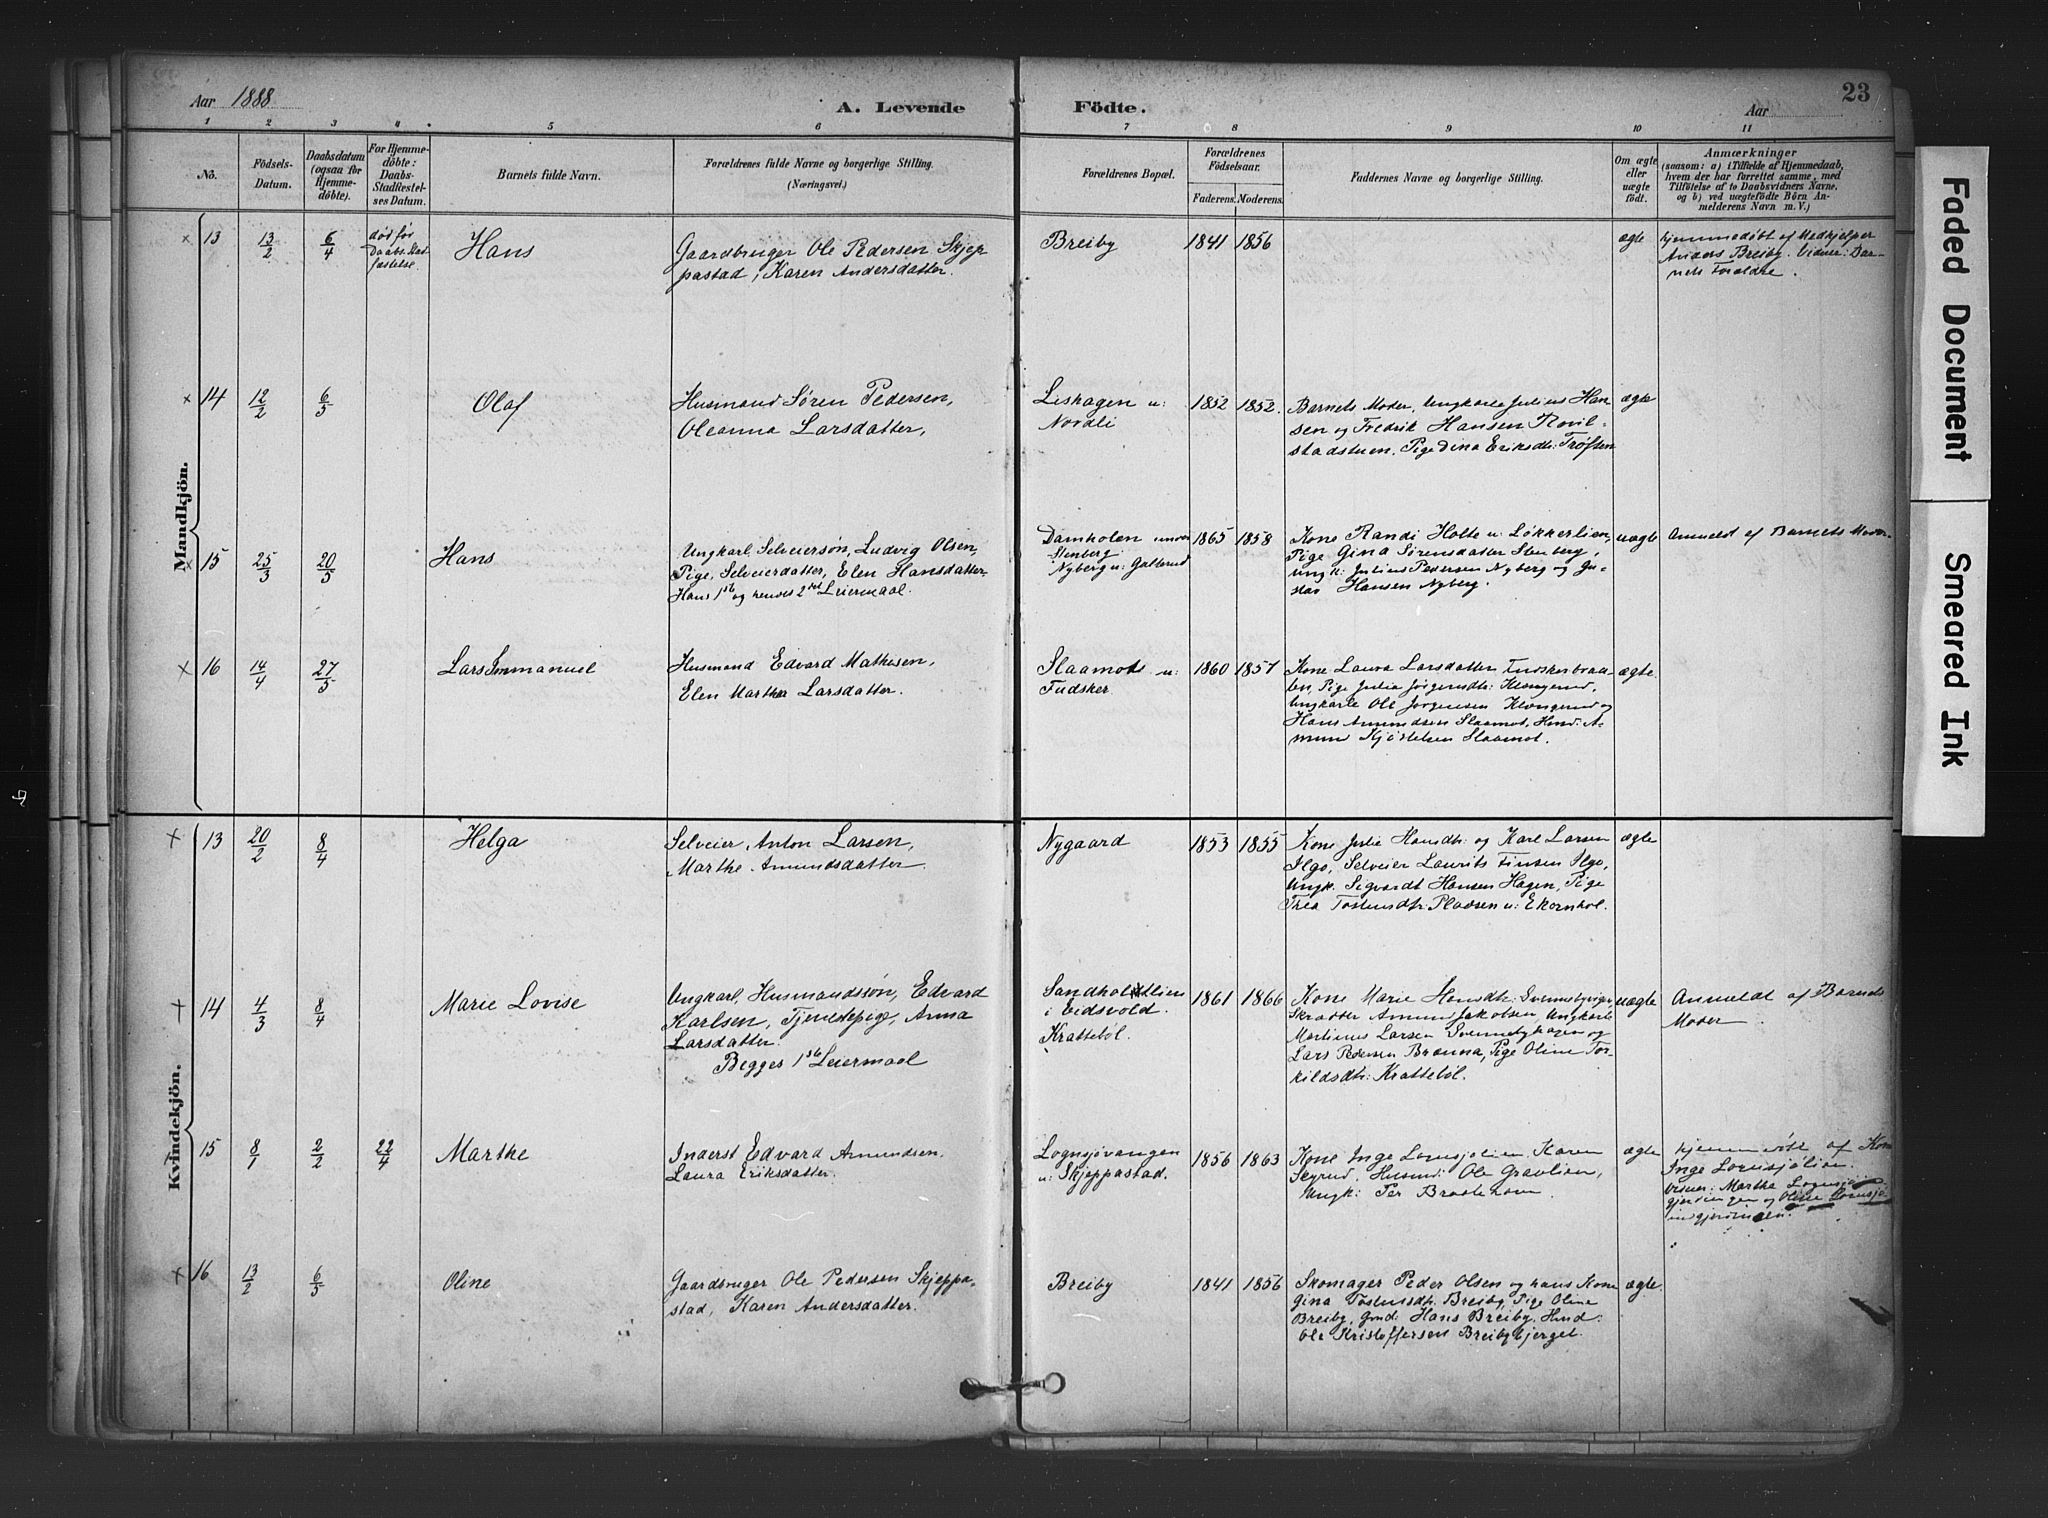 Aar 1888
A. Levende
Födte.
Aar
23
1 2 3 4 5 6 7 8 9 10 11
No.
Födsels-
Datum.
Daabsdatum
(ogsaa for
Hjemme-
döbte).
For Hjemme-
döbte:
Daabs-
Stadfæstel-
ses Datum.
Barnets fulde Navn.
Forældrenes fulde Navne og borgerlige Stilling.
(Næringsvei.)
Forældrenes Bopæl.
Forældrenes
Födselsaar.
Faderens. Moderens.
Faddernes Navne og borgerlige Stilling.
Om ægte
eller
uægte
födt.
Anmærkninger
(saasom: a) i Tilfælde af Hjemmedaab,
hvem der har forrettet samme, med
Tilföielse af to Daabsvidners Navne,
og b) ved uægtefödte Börn An-
melderens Navn m. V.)
Mandkjön.
× 13 13/2 6/4
død før
Daabs Stad
fæstelse
Hans
Gaardbruger Ole Pedersen Skjep-
pastad, Karen Andersdatter.
Breiby 1841 1856 ægte
hjemmedøbt af Medhjelper
Anders Breiby. Vidner: Bar-
nets Forældre.
× 14 12/2 6/5 Olaf
Husmand Søren Pedersen,
Oleanna Larsdatter,
Lishagen u:
Nordli
1852 1852.
Barnets Moder, Ungkarle Julius Han-
sen og Fredrik Hansen
stadstuen, Pige Dina Eriksdt: Trøften
ægte
× 15 25/3 20/5 Hans
Ungkarl, Selveiersøn, Ludvig Olsen,
Pige, Selveierdatter, Elen Hansdatter.
Hans 1ste og hendes 2det Leiermaal.
Damholen under
Stenberg
Nyberg u: Galterud
1865 1858
Kone Randi Holte u: Løkkerlien,
Pige Gina Sørensdatter Stenberg,
Ungk: Julius Pedersen Nyberg og Gu-
stav Hansen Nyberg.
uægte
Anmeldt af Barnets Moder.
× 16 14/4 27/5 Lars Emmanuel
Husmand Edvard Mathisen,
Elen Marthea Larsdatter.
Slaamot u:
Fudsker
1860 1857
Kone Laura Larsdatter Fudskerbraa-
ten, Pige Julia Jørgensdt: Klongerud,
Ungkarle Ole Jørgensen Klongerud og
Hans Amundsen Slaamot, Husd: A-
mund Kjøstelsen Slaamot.
ægte
Kvindekjön.
× 13 20/2 8/4 Helga
Selveier, Anton Larsen,
Marthe Amundsdatter.
Nygaard 1853 1855
Kone Julie Hansdt: og Karl Larsen
Ilgo, Selveier Laurits Finsen Ilgo,
Ungk. Sigvardt Hansen Hagen, Pige
Thea Tostensdt: Pladsen u: Ekornhol.
ægte
+ 14 4/3 8/4 Marie Lovise
Ungkarl, Husmandssøn, Edvard
Karlsen, Tjenestepige, Anna
Larsdatter.
Begges 1ste Leiermaal
Sandholtlien
i Eidsvold.
Kratteböl.
1861 1866
Kone Marie Hansdt: Svennebyeiger,
Skrædder Amund Jakobsen, Ungkarle
Martinus Larsen Svennebyhagen og
Lars Pedersen Brænna, Pige Oline Tor-
kildsdt: Kratteböl.
uægte
Anmeldt af Barnets
Moder
15 8/1 2/2 22/4 Marthe
Inderst Edvard Amundsen,
Laura Eriksdatter.
Lognsjøvangen
u: Skjeppastad.
1856 1863
Kone Inge Lornsjølien, Karen
Skyrud, Husmd: Ole Gravlien,
Ungk: Per Braatehom.
ægte
hjemmedöbt af Kone
Inge Lornsjølien.
Vidner: Marthe Lognsjø-
gjerdingen og Oline Lornsjø-
liengjerdingen.
× 16 13/2 6/5 Oline
Gaardbruger Ole Pedersen Skjeppa-
stad, Karen Andersdatter.
Breiby 1841 1856
Skomager Peder Olsen og hans Kone
Gina Tostensdt. Breiby, Pige Oline
Breiby, Gmd: Hans Breiby, Husd:
Ole Kristoffersen Breibybjerget.
ægte
Faded Document
Smeared Ink